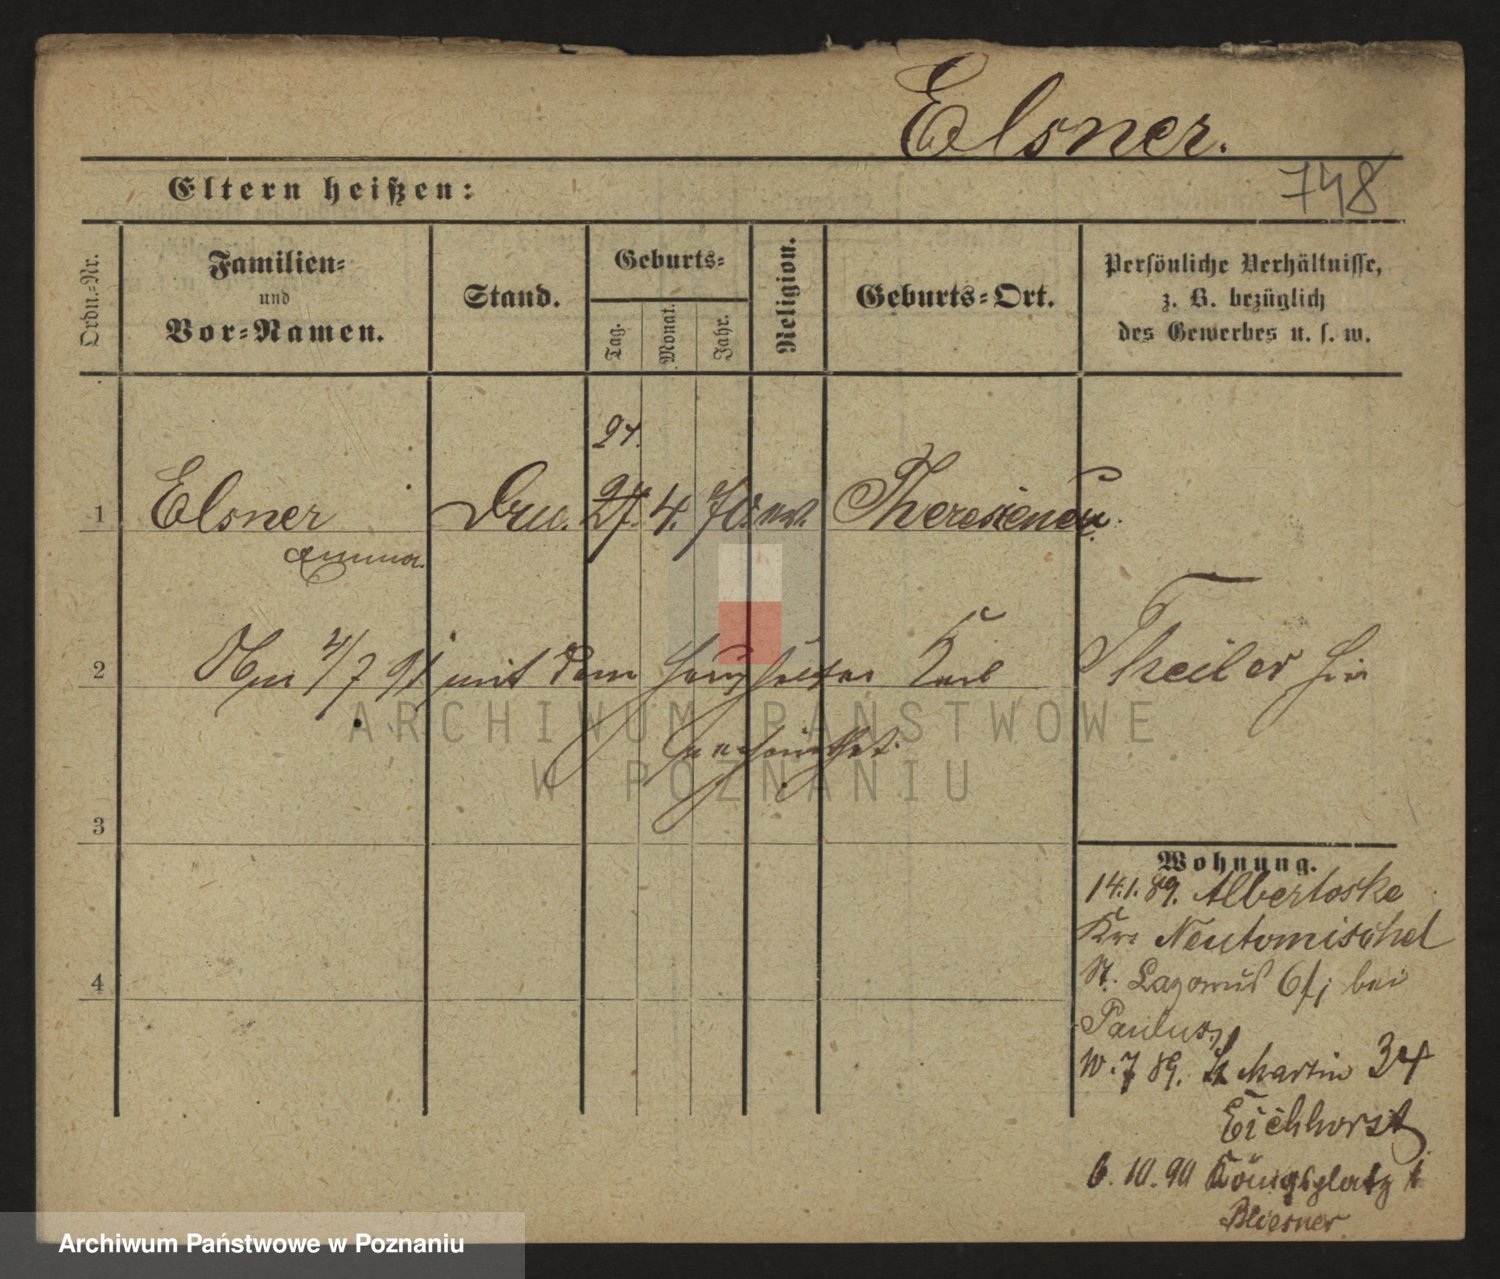 Elsner.
748
Eltern heißen:
Ordn.-Nr.
Familien-
und
Vor-Namen.
Stand.
Geburts-
Tag.
Monat.
Jahr.
Religion.
Geburts-Ort.
Persönliche Verhältnisse,
z. B. bezüglich
des Gewerbes u. s. w.
27.
1 Elsner 27. 4. 70. ev. Theresienau
Emma
2 Am 4/7 91 mit dem Haushälter Karl Theiler hier
ARCHIWUM PAŃSTWOWE
W POZNANIU
3
Wohnung.
14.1.89. Albertoske
Krs Neutomischel
St. Lazarus 6/7 bei
Paulus
4
10.7 89. St Martin 34
Eichhorst
6.10.90 Königsplatz 1
Bliesner
Archiwum Państwowe w Poznaniu